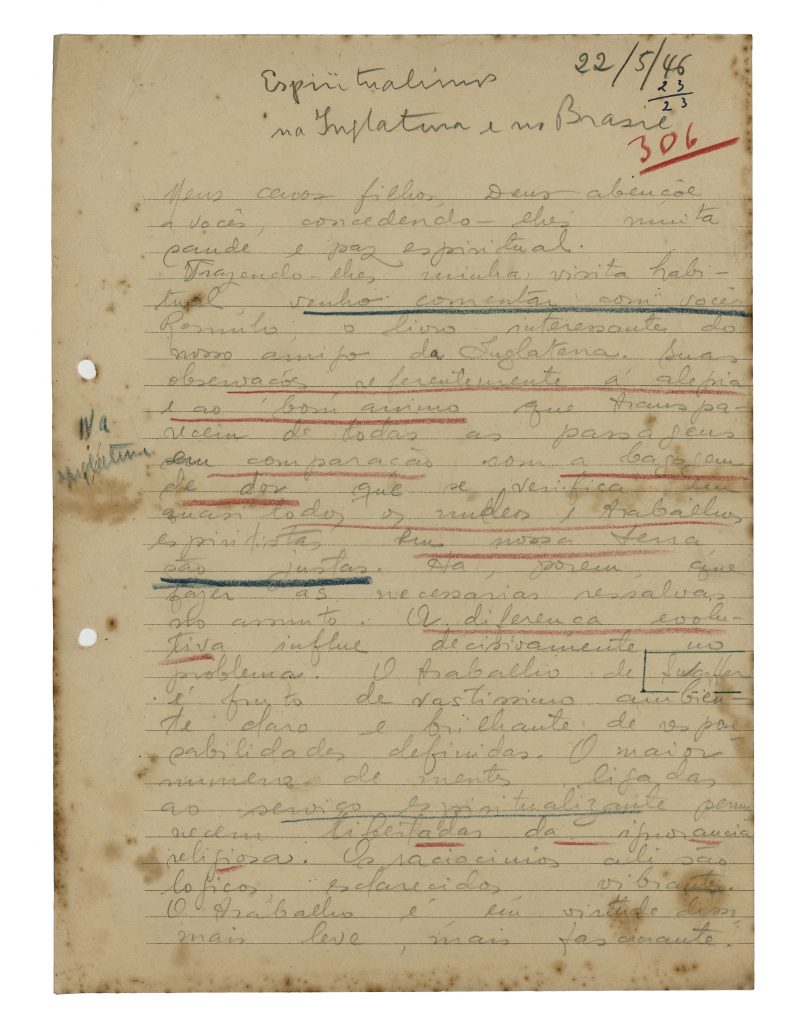 22/5/46
Espiritualismo
23
23
na Inglaterra e no Brasil
306
Meus caros filhos, Deus abençôe
a vocês, concedendo-lhes muita
saude e paz espiritual.
Trazendo-lhes minha visita habi-
tual, venho comentar com você
Romulo, o livro interessante do
nosso amigo da Inglaterra. Suas
observações referentemente á alegria
e ao bom animo que transpa-
recem de todas as passagens
em comparação com a bagagem
de dor que se verifica em
quasi todos os nucleos e trabalhos
espiritistas em nossa terra
são justas. Ha, porem, que
fazer as necessarias ressalvas
no assunto. A diferença evolu-
tiva influe decisivamente no
problema. O trabalho de Swaffer
é fruto de vastissimo ambien-
te claro e brilhante de respon-
sabilidades definidas. O maior
numero de mentes ligadas
ao serviço espiritualizante perma
necem libertadas da ignorancia
religiosa. Os raciocinios ali são
logicos, esclarecidos vibrantes.
O trabalho é em virtude disso
mais leve, mais fascinante.
Na
Inglaterra